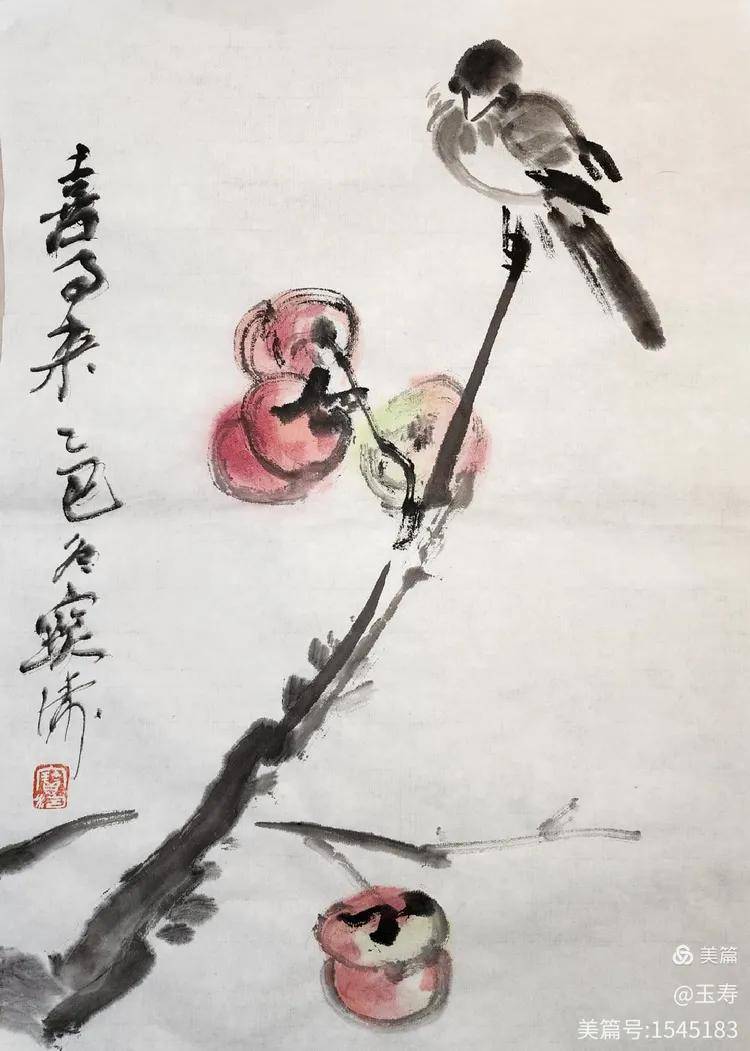 喜事来 乙巳冬 寶涛
美篇
@玉寿
美篇号:1545183